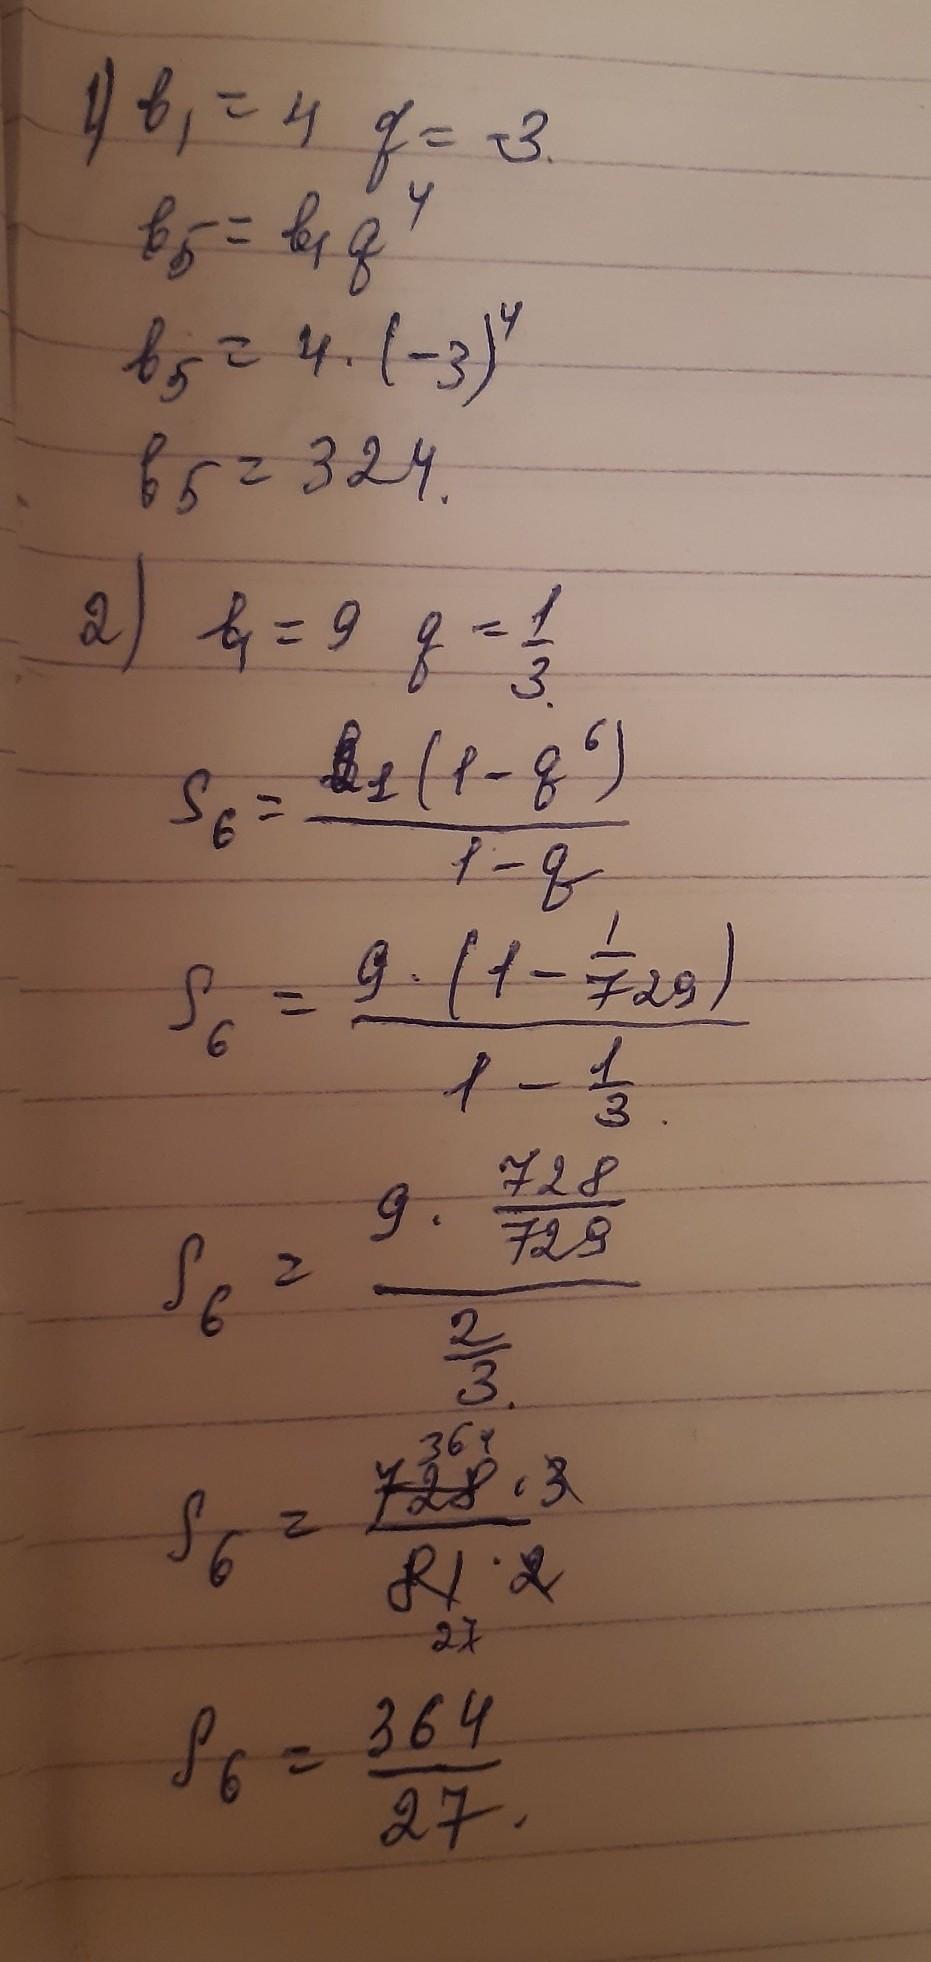 1) b₁ = 4 q = -3.
b₅ = b₁ q⁴
b₅ = 4 · (-3)⁴
b₅ = 324.
2) b₁ = 9 q = 1/3.
S₆ = b₁(1 - q⁶) / 1 - q
S₆ = 9 · (1 - 1/729) / 1 - 1/3.
S₆ = 9 · 728/729 / 2/3.
364
S₆ = 728 · 3 / 81 · 2
27
S₆ = 364/27.